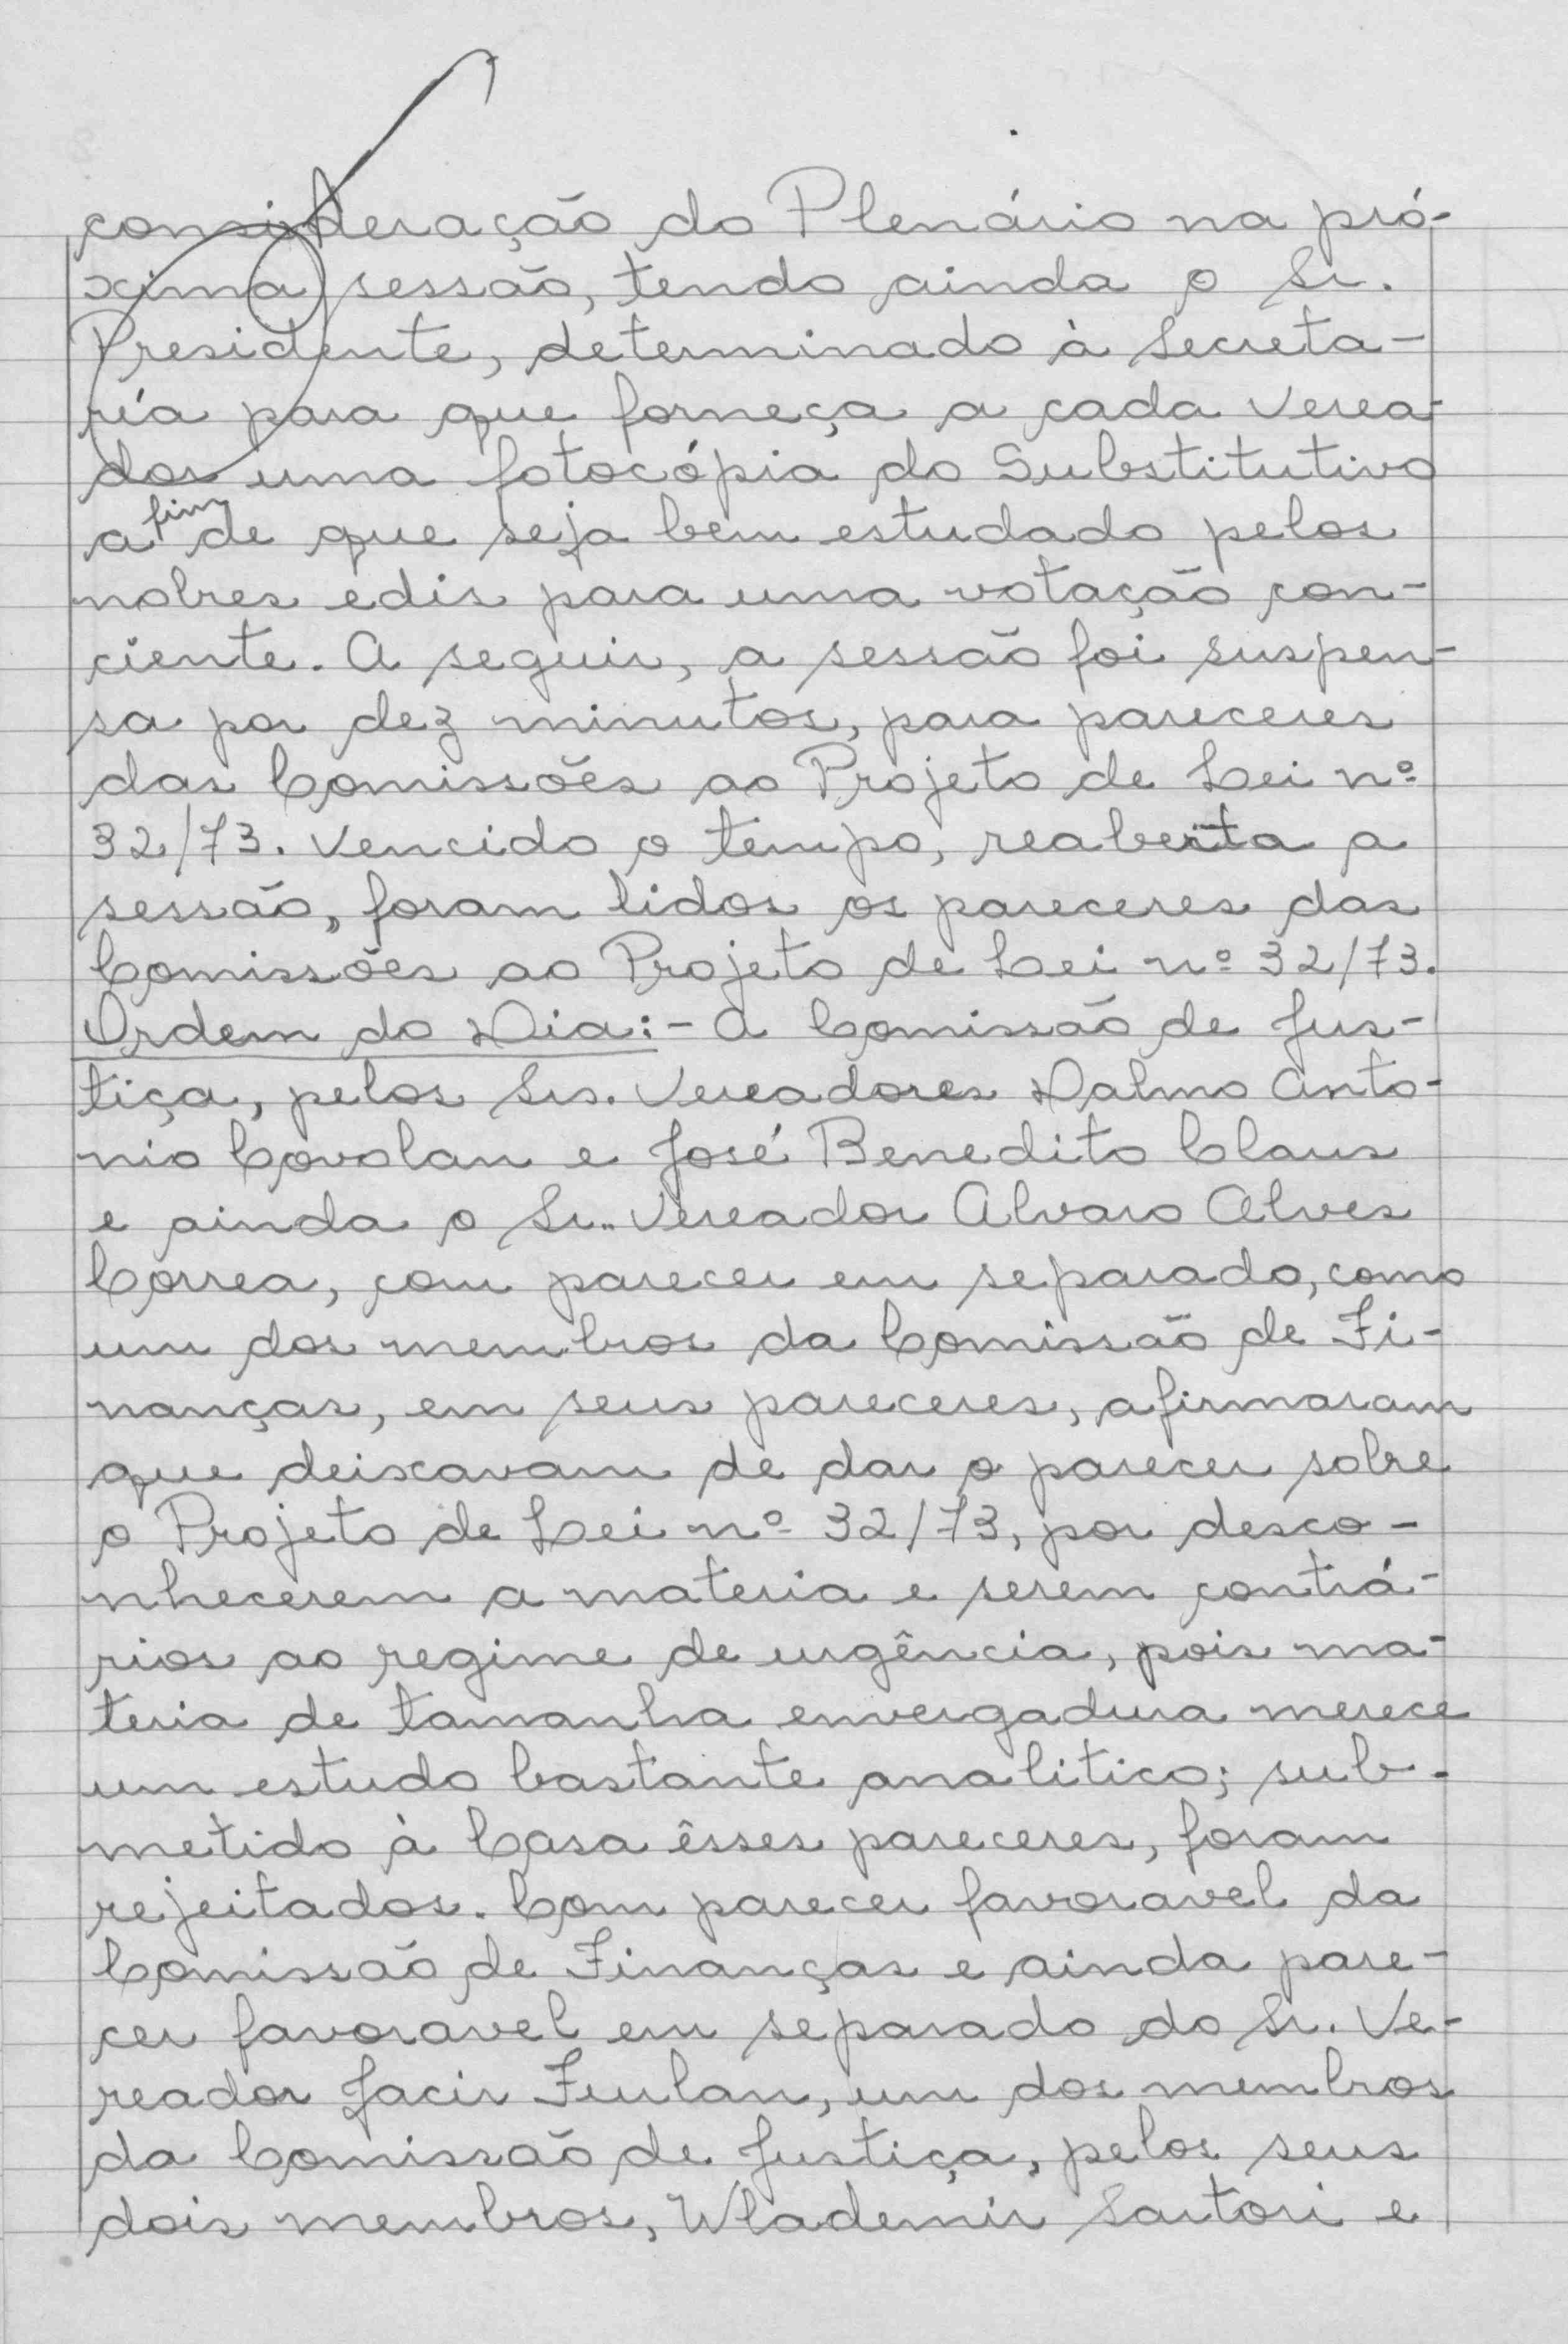 consideração do Plenário na pró-
xima sessão, tendo ainda o Sr.
Presidente, determinado à Secreta-
ría para que forneça a cada Verea-
dor uma fotocópia do Substitutivo
a fim de que seja bem estudado pelos
nobres edis para uma votação con-
ciente. A seguir, a sessão foi suspen-
sa por dez minutos, para pareceres
das Comissões ao Projeto de Lei nº
32/73. Vencido o tempo, reaberta a
sessão, foram lidos os pareceres das
Comissões ao Projeto de Lei nº 32/73.
Ordem do Dia:- A Comissão de Jus-
tiça, pelos Srs. Vereadores Dalmo Anto-
nio Covolan e José Benedito Claus
e ainda o Sr.. Vereador Alvaro Alves
Correa, com parecer em separado, como
um dos membros da Comissão de Fi-
nanças, em seus pareceres, afirmaram
que deixavam de dar o parecer sobre
o Projeto de Lei nº 32/73, por desco-
nhecerem a materia e serem contrá-
rios ao regime de urgência, pois ma-
teria de tamanha envergadura merece
um estudo bastante analitico; sub-
metido à Casa êsses pareceres, foram
rejeitados. Com parecer favoravel da
Comissão de Finanças e ainda pare-
cer favoravel em separado do Sr. Ve-
reador Jacir Furlan, um dos membros
da Comissão de Justiça, pelos seus
dois membros, Wlademir Sartori e